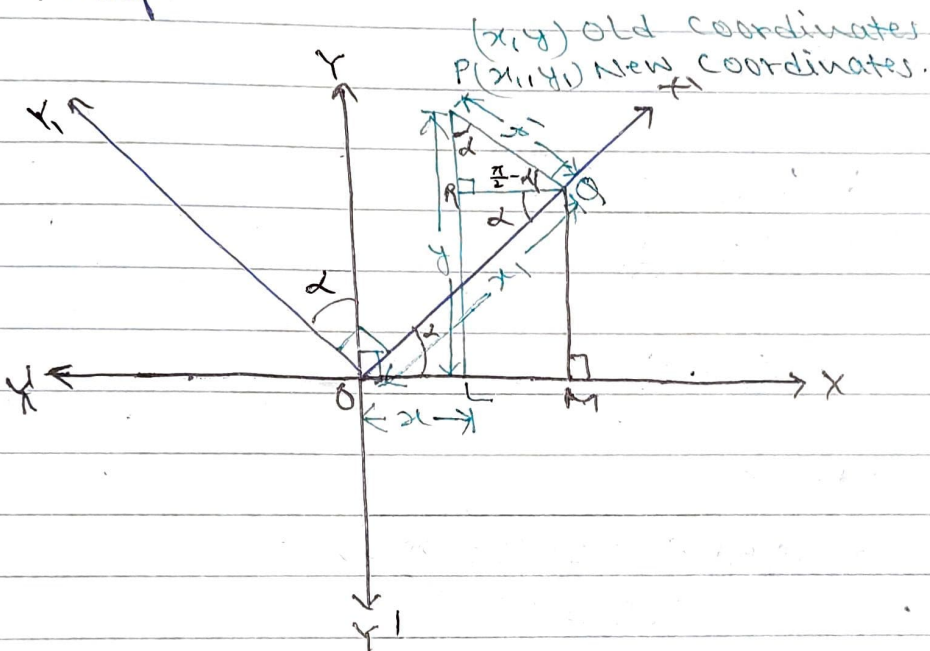 (x, y) Old Coordinates
P(x₁, y₁) New Coordinates.
Y
X'
Y₁
α
R
π/2 - α
Q
α
y
x₁
α
α
X'
O
L
M
X
← x →
Y'